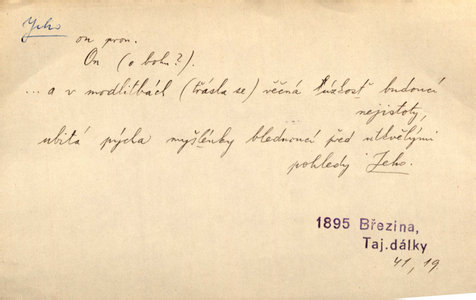 Jeho
on pron.
On (o bohu?).
... a v modlitbách (třásla se) věčná úzkost budoucí
nejistoty,
ubitá pýcha myšlénky blednoucí před utkvělými
pohledy Jeho.
1895 Březina,
Taj.dálky
41, 19.